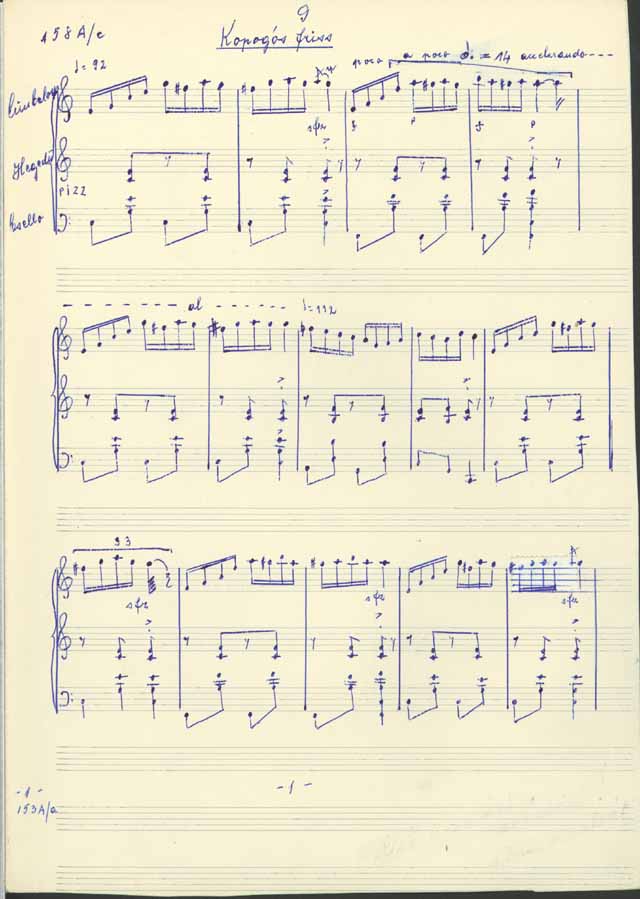 9
158A/c
Kopogós friss
♩=92
poco a poco ♩.=14 accelerando---
Cimbalom
sfz
f p f p
Hegedű
pizz
Csello
al ♩=132
93
sfz sfz sfz
-1- -1-
153A/a